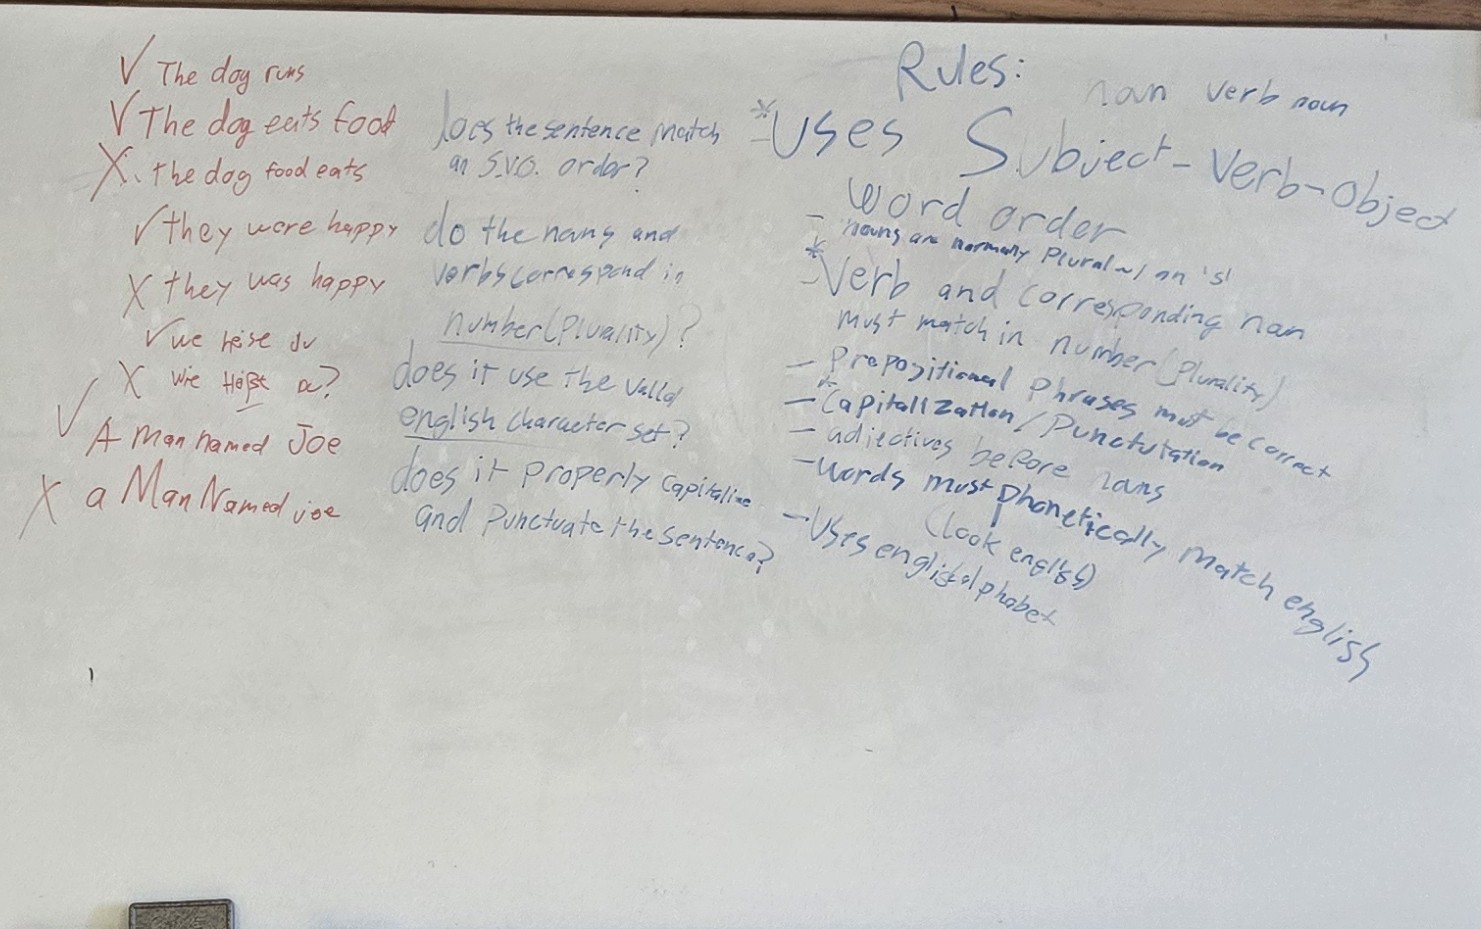 √ The dog runs
√ The dog eats food
X. the dog food eats
√ they were happy
X they was happy
√ we heise du
X Wie Heißt du?
√ A Man named Joe
X a Man Named joe
Does the sentence Match
an S.V.O. order?
do the nouns and
verbs correspond in
number (Plurality)?
does it use the valid
english character set?
does it Properly capitalize
and Punctuate the sentence?
Rules:
noun verb noun
* - Uses Subject-Verb-Object
word order
- nouns are normally Plural w/ an 's'
* - Verb and corresponding noun
must match in number (Plurality)
- Prepositional Phrases must be correct
* - Capitalization / Punctutation
- adjectives before nouns
- words must phonetically match english
(look english)
- Uses english alphabet